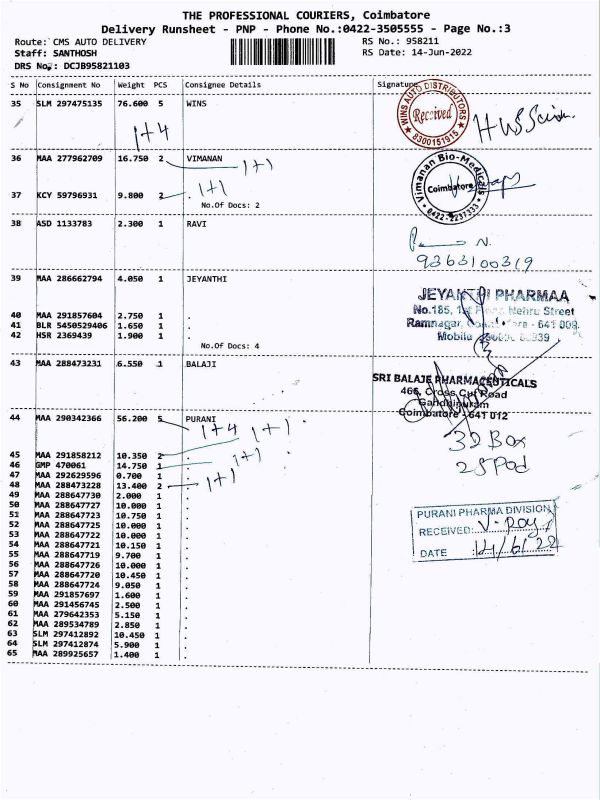 THE PROFESSIONAL COURIERS, Coimbatore
Delivery Runsheet - PNP - Phone No.:0422-3505555 - Page No.:3
Route: CMS AUTO DELIVERY RS No.: 958211
Staff: SANTHOSH RS Date: 14-Jun-2022
DRS No.: DCJB95821103
S No Consignment No Weight PCS Consignee Details Signature
35 SLM 297475135 76.600 5 WINS
WINS AUTO DISTRIBUTORS
Received
8300151915
1+4
36 MAA 277962709 16.750 2 VIMANAN
1+1
Vimanan Bio-Medicals
Coimbatore
0422-2237333
37 KCY 59796931 9.800 2 .
1+1
No.Of Docs: 2
38 ASD 1133783 2.300 1 RAVI
9363100319
39 MAA 286662794 4.050 1 JEYANTHI
JEYANTHI PHARMAA
No.185, 1st Nehru Street
Ramnagar, - 641 009.
40 MAA 291857604 2.750 1 .
41 BLR 5450529406 1.650 1 .
42 HSR 2369439 1.900 1 .
No.Of Docs: 4
43 MAA 288473231 6.550 1 BALAJI
SRI BALAJE PHARMACEUTICALS
466, Cross Cut Road
Gandhipuram
Coimbatore - 641 012
44 MAA 290342366 56.200 5 PURANI
1+4 1+1
39 Box
25 Pod
45 MAA 291858212 10.350 2 .
46 GMP 470061 14.750 1 .
1+1
47 MAA 292629596 0.700 1 .
48 MAA 288473228 13.400 2 .
1+1
49 MAA 288647730 2.000 1 .
50 MAA 288647727 10.000 1 .
51 MAA 288647723 10.750 1 .
52 MAA 288647725 10.000 1 .
53 MAA 288647722 10.000 1 .
54 MAA 288647721 10.150 1 .
55 MAA 288647719 9.700 1 .
56 MAA 288647726 10.000 1 .
57 MAA 288647720 10.450 1 .
58 MAA 288647724 9.050 1 .
59 MAA 291857697 1.600 1 .
60 MAA 291456745 2.500 1 .
61 MAA 279642353 5.150 1 .
62 MAA 289534789 2.850 1 .
63 SLM 297412892 10.450 1 .
64 SLM 297412874 5.900 1 .
65 MAA 289925657 1.400 1 .
PURANI PHARMA DIVISION
RECEIVED:
DATE 14/6/22